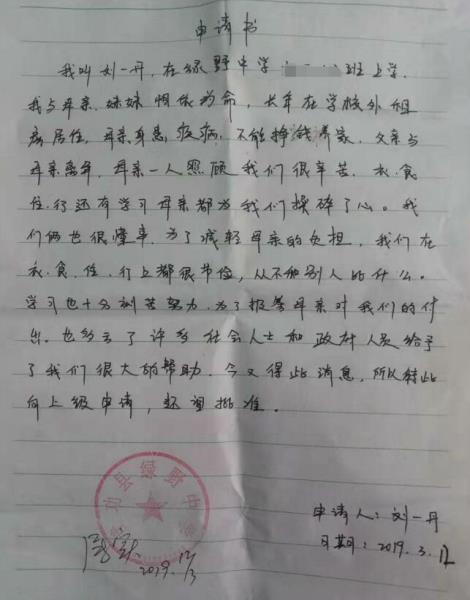 申请书
我叫刘一丹，在绿野中学 班上学.
我与母亲、妹妹相依为命，长年在学校外租
房居住，母亲身患疾病，不能挣钱养家，父亲与
母亲离异，母亲一人照顾我们很辛苦，衣.食
住.行还有学习母亲都为我们操碎了心。我
们俩也很懂事，为了减轻母亲的负担，我们在
衣、食、住、行上都很节俭，从不和别人比什么。
学习也十分刻苦努力，为了报答母亲对我们的付
出。也多亏了许多社会人士和政府人员给予
了我们很大的帮助，今又得此消息，所以特此
向上级申请，还望批准。
县绿野中学
申请人：刘一丹
日期：2019.3.12
2019.12/3